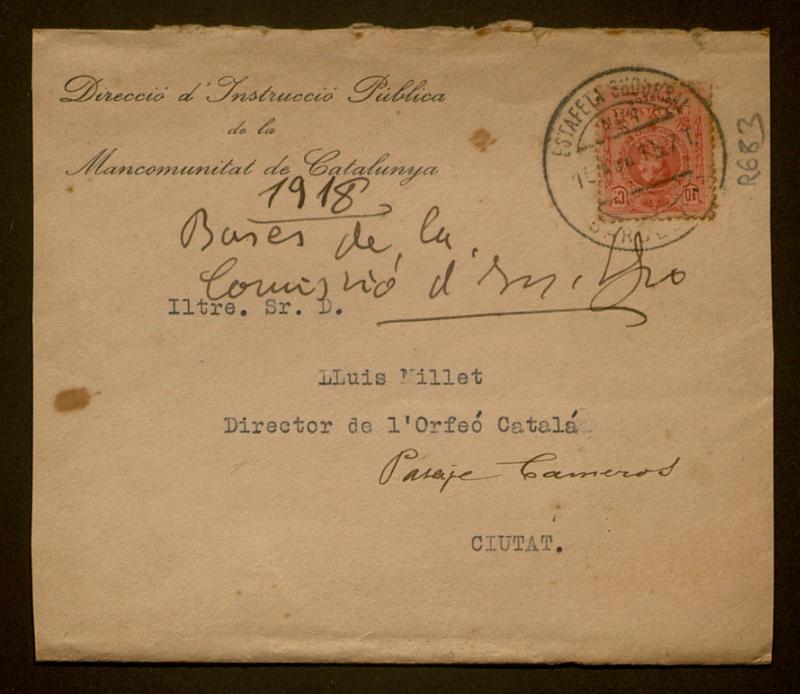 Direcció d'Instrucció Pública
de la
Mancomunitat de Catalunya
1918
Bases de la
Comissió d'
Iltre. Sr. D.
LLuis Millet
Director de l'Orfeó Catalá
Pasaje Cameros
CIUTAT.
ESTAFETA SUCURSAL
10
R683